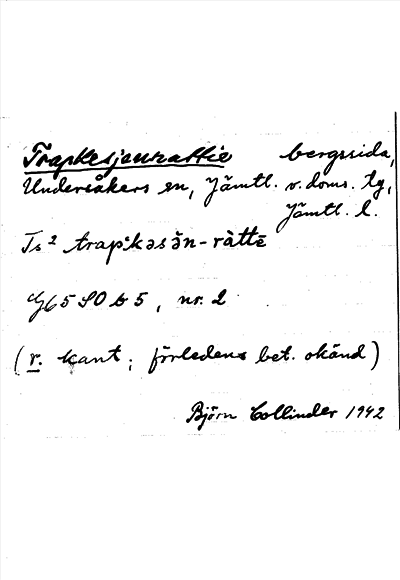 Trapkesjaurattie bergssida,
Undersåkers sn, Jämtl. v. doms. tg,
Jämtl. l.
Ts² trap'kəsǎn-ràttē
G65SO b 5, nr. 2
(r. kant; förledens bet. okänd)
Björn Collinder 1942